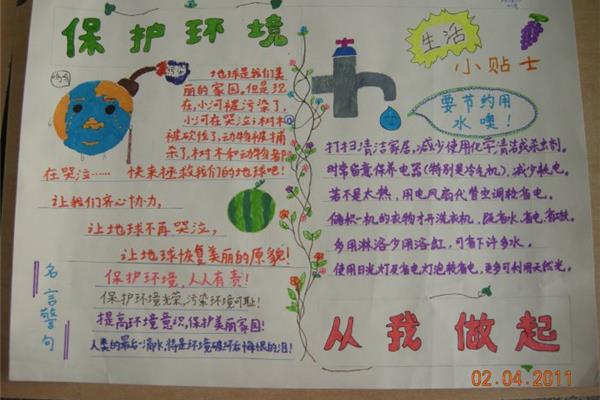 保护环境
呜呜
污染
地球是我们美
丽的家园,但是现
在,小河被污染了,
小河在哭泣;树木
被砍伐了,动物被捕
杀了,树木和动物都
在哭泣…… 快来拯救我们的地球吧!
让我们齐心协力,
让地球不再哭泣,
让地球恢复美丽的原貌!
名言警句
保护环境,人人有责!
保护环境光荣,污染环境可耻!
提高环境意识,保护美丽家园!
人类的最后一滴水,将是环境破坏后悔恨的泪!
生活
小贴士
要节约用
水噢!
打扫清洁家居,减少使用化学清洁或杀虫剂。
时常留意保养电器(特别是冷气机),减少耗电。
若不是太热,用电风扇代替空调较省电。
储够一机的衣物才开洗衣机,既省水、省电、省钱。
多用淋浴少用浴缸,可省下许多水。
使用日光灯及省电灯泡较省电,更多可利用天然光。
从我做起
02.04.2011